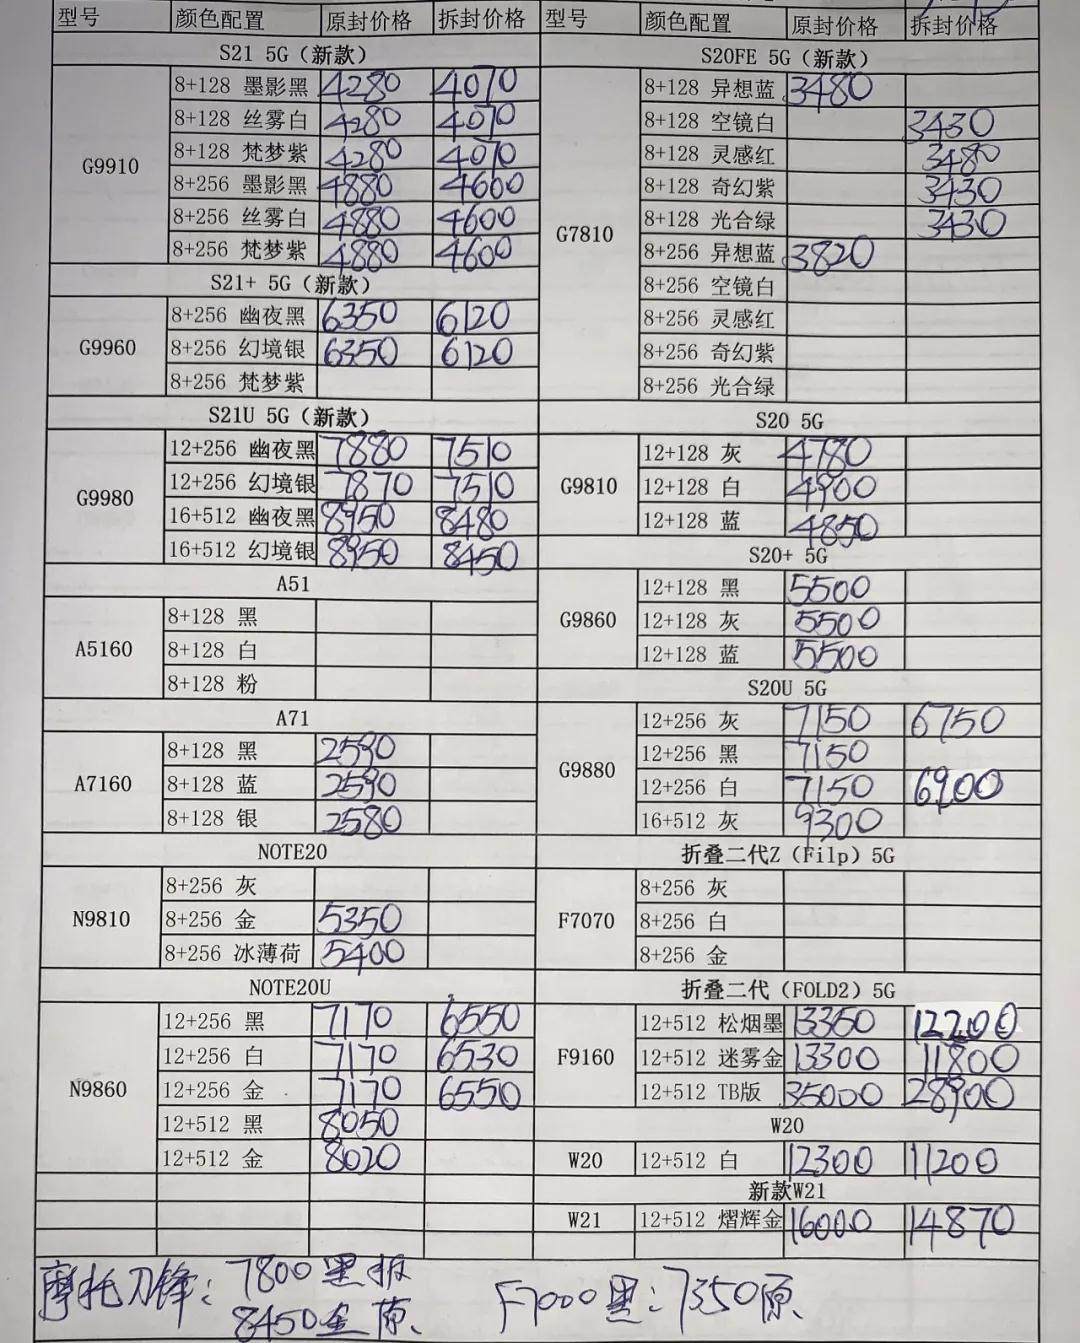 型号 颜色配置 原封价格 拆封价格
S21 5G（新款）
G9910
8+128 墨影黑 4280 4070
8+128 丝雾白 4280 4070
8+128 梵梦紫 4280 4070
8+256 墨影黑 4880 4600
8+256 丝雾白 4880 4600
8+256 梵梦紫 4880 4600
S21+ 5G（新款）
G9960
8+256 幽夜黑 6350 6120
8+256 幻境银 6350 6120
8+256 梵梦紫
S21U 5G（新款）
G9980
12+256 幽夜黑 7880 7510
12+256 幻境银 7870 7510
16+512 幽夜黑 8950 8480
16+512 幻境银 8950 8450
A51
A5160
8+128 黑
8+128 白
8+128 粉
A71
A7160
8+128 黑 2590
8+128 蓝 2590
8+128 银 2580
NOTE20
N9810
8+256 灰
8+256 金 5350
8+256 冰薄荷 5400
NOTE20U
N9860
12+256 黑 7170 6550
12+256 白 7170 6530
12+256 金 7170 6550
12+512 黑 8050
12+512 金 8020
型号 颜色配置 原封价格 拆封价格
S20FE 5G（新款）
G7810
8+128 异想蓝 3480
8+128 空镜白 3430
8+128 灵感红 3480
8+128 奇幻紫 3430
8+128 光合绿 3430
8+256 异想蓝 3820
8+256 空镜白
8+256 灵感红
8+256 奇幻紫
8+256 光合绿
S20 5G
G9810
12+128 灰 4780
12+128 白 4900
12+128 蓝 4850
S20+ 5G
G9860
12+128 黑 5500
12+128 灰 5500
12+128 蓝 5500
S20U 5G
G9880
12+256 灰 7150 6750
12+256 黑 7150
12+256 白 7150 6900
16+512 灰 9300
折叠二代Z（Filp）5G
F7070
8+256 灰
8+256 白
8+256 金
折叠二代（FOLD2）5G
F9160
12+512 松烟墨 13350 12200
12+512 迷雾金 13300 11800
12+512 TB版 35000 28900
W20
W20 12+512 白 12300 11200
新款W21
W21 12+512 熠辉金 16000 14870
摩托刀锋：7800黑 F7000黑：7350原
8450金原